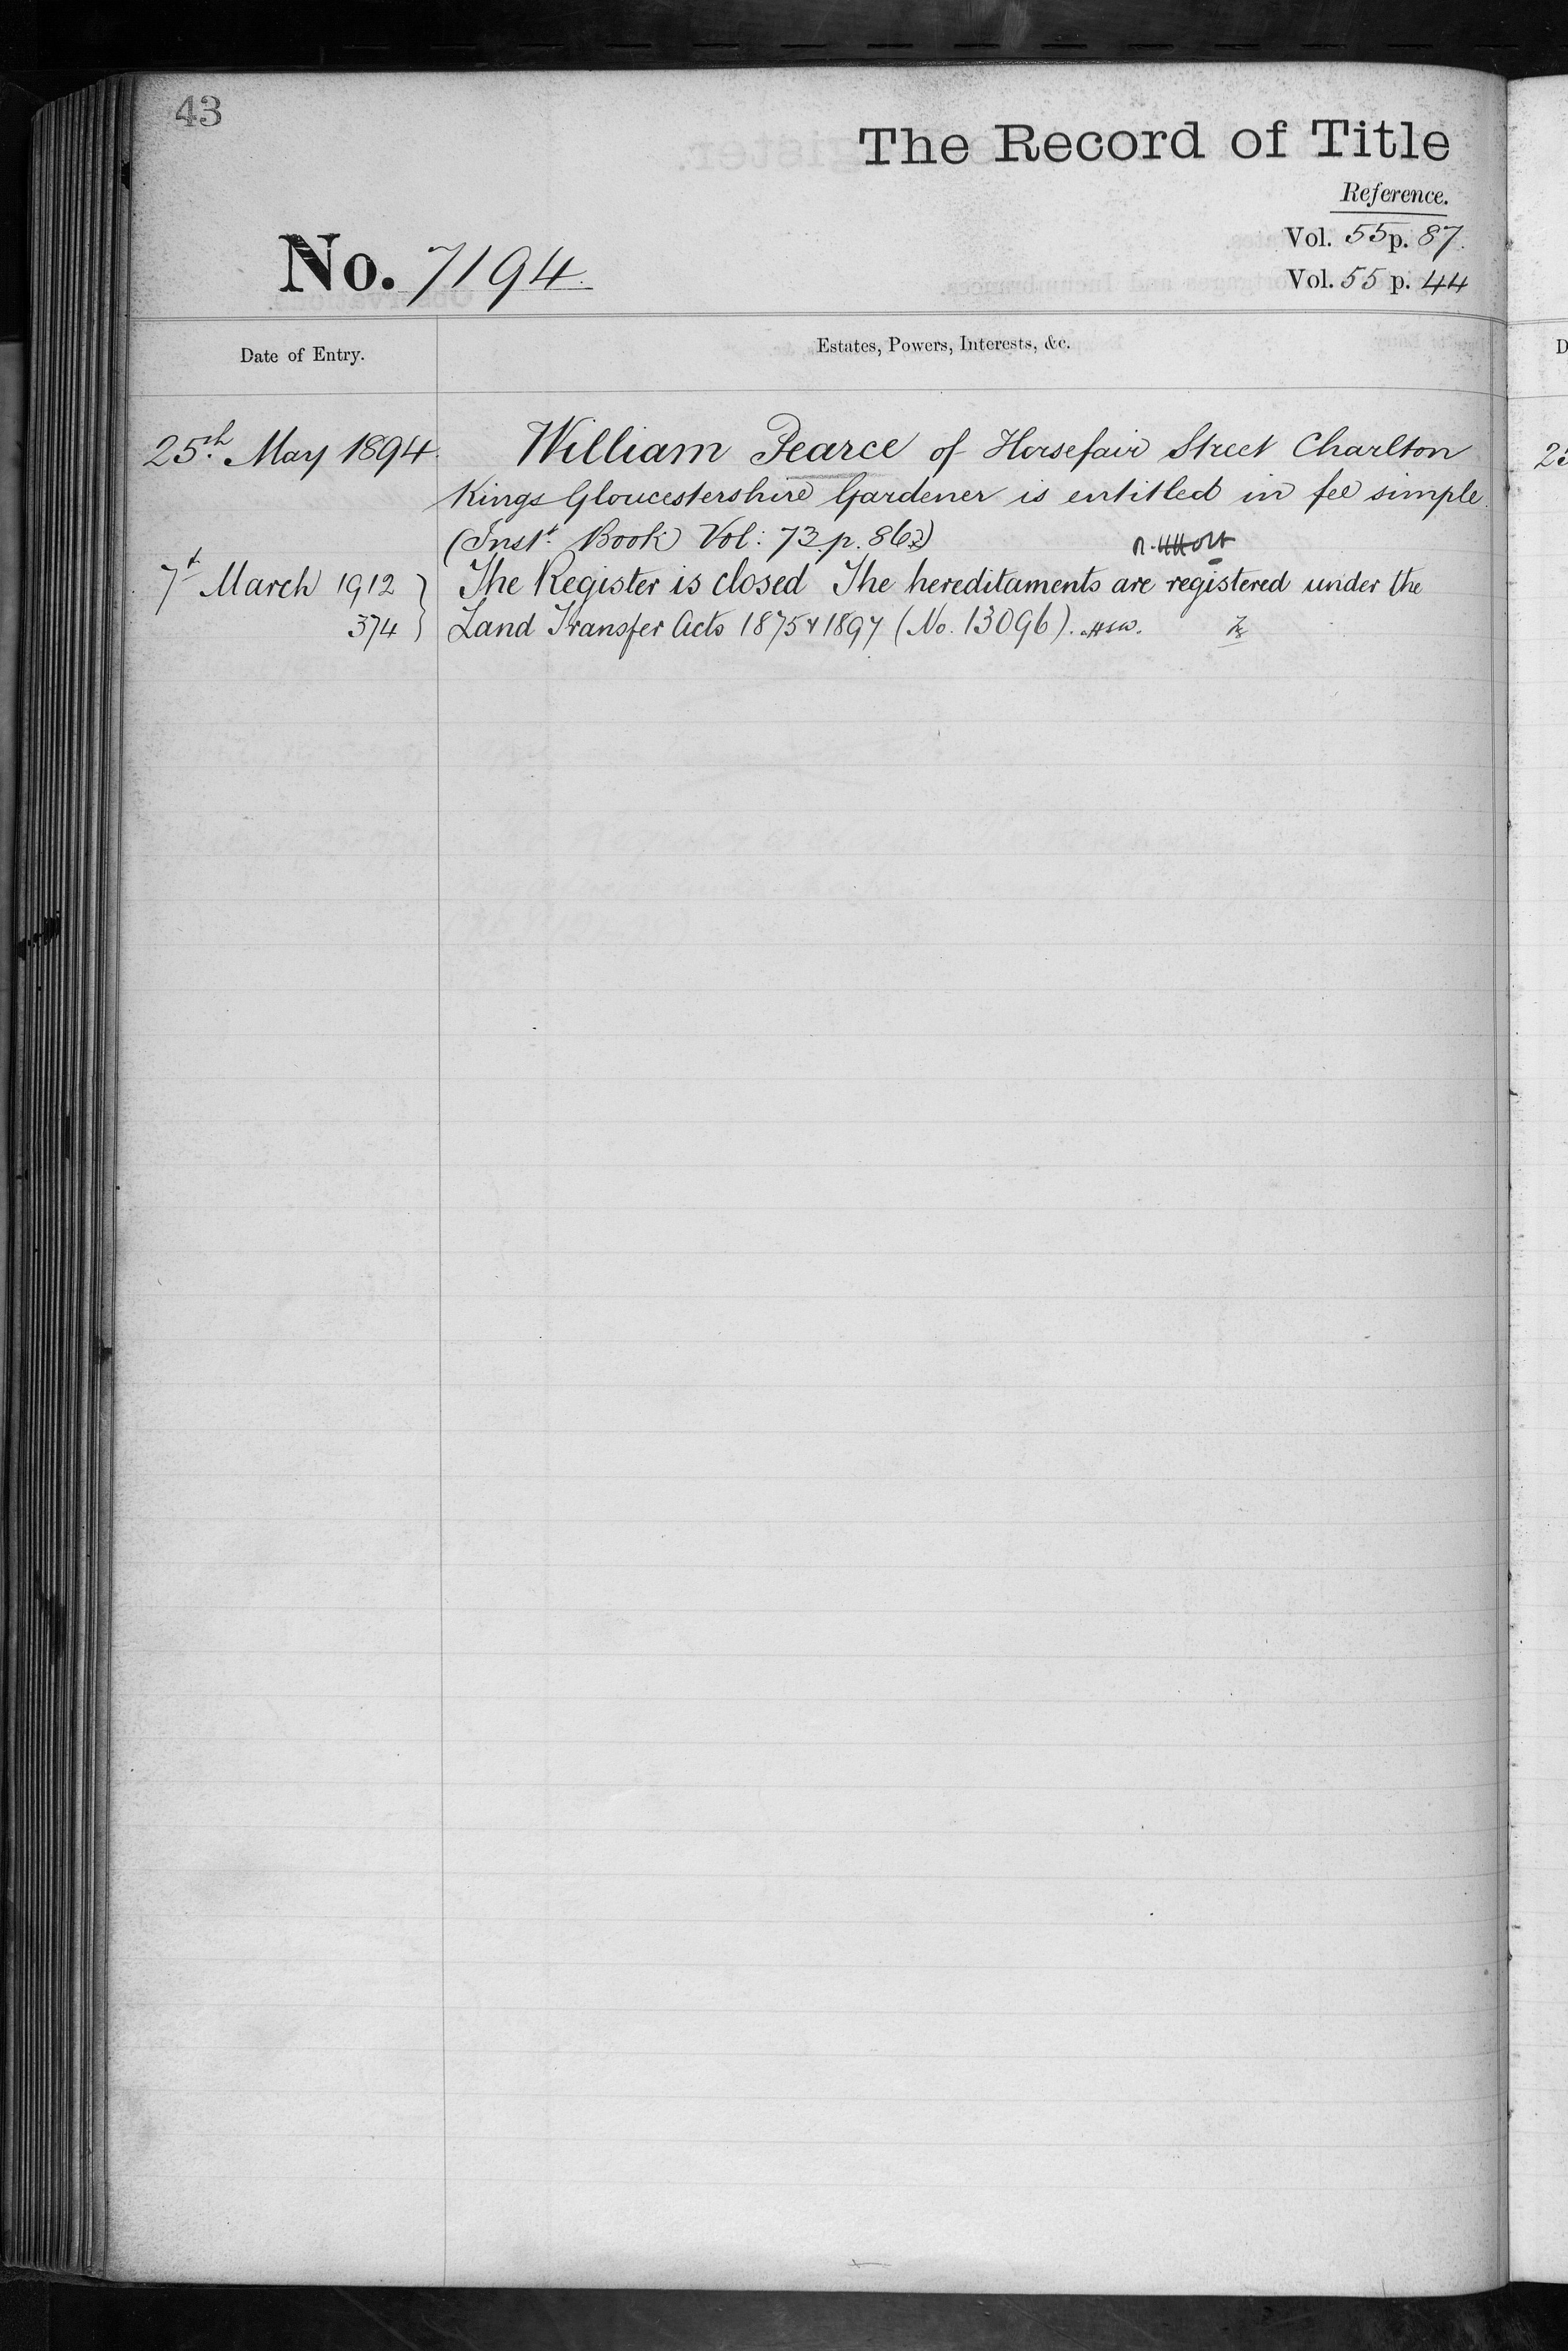 43
The Record of Title
Reference.
Vol. 55 p. 87.
No. 7194.
Vol. 55 p. 44
Date of Entry.
Estates, Powers, Interests, &c.
25th May 1894. William Pearce of Horsefair Street Charlton
Kings Gloucestershire Gardener is entitled in fee simple.
(Inst. Book Vol: 73 p. 862)
7th March 1912 } The Register is closed The hereditaments are registered under the
374 } Land Transfer Acts 1875 & 1897 (No. 13096).